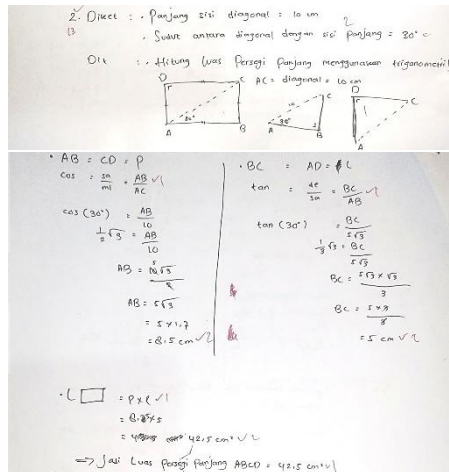 2. Diket : · Panjang sisi diagonal = 10 cm
2
13
· Sudut antara diagonal dengan sisi panjang = 30°
Dit : · Hitung Luas Persegi Panjang menggunakan trigonometri
AC = diagonal = 10 cm
D C
A B
30°
A B C
10
30°
D C
A
· AB = CD = P
cos = sa/mi = AB/AC √1
cos (30°) = AB/10
1/2 √3 = AB/10
AB = 10√3/2
AB = 5√3
= 5 × 1,7
= 8,5 cm √2
· BC = AD = L
tan = de/sa = BC/AB √1
tan (30°) = BC/5√3
1/3 √3 = BC/5√3
BC = 5√3 × √3/3
BC = 5 × 3/3
= 5 cm √2
· L □ = P × L √1
= 8,5 × 5
= 42,5 cm² √2
=> Jadi Luas Persegi Panjang ABCD = 42,5 cm² √1